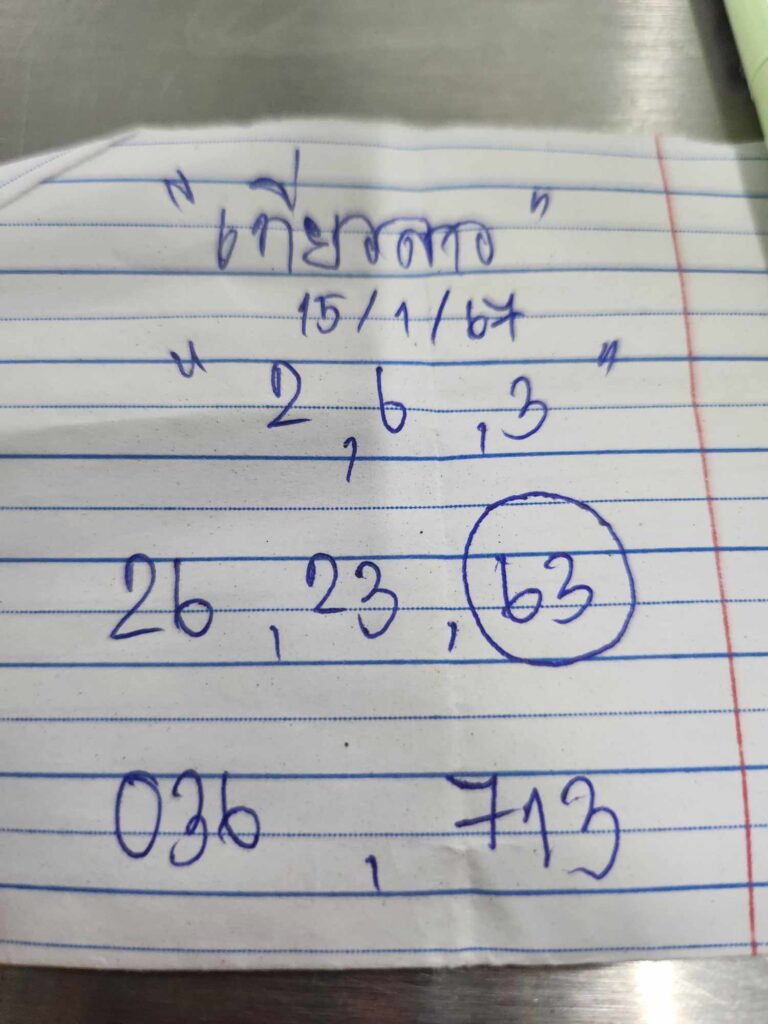 "เที่ยวลาว"
15/1/67
"2, 6, 3"
26, 23, 63
036, 713